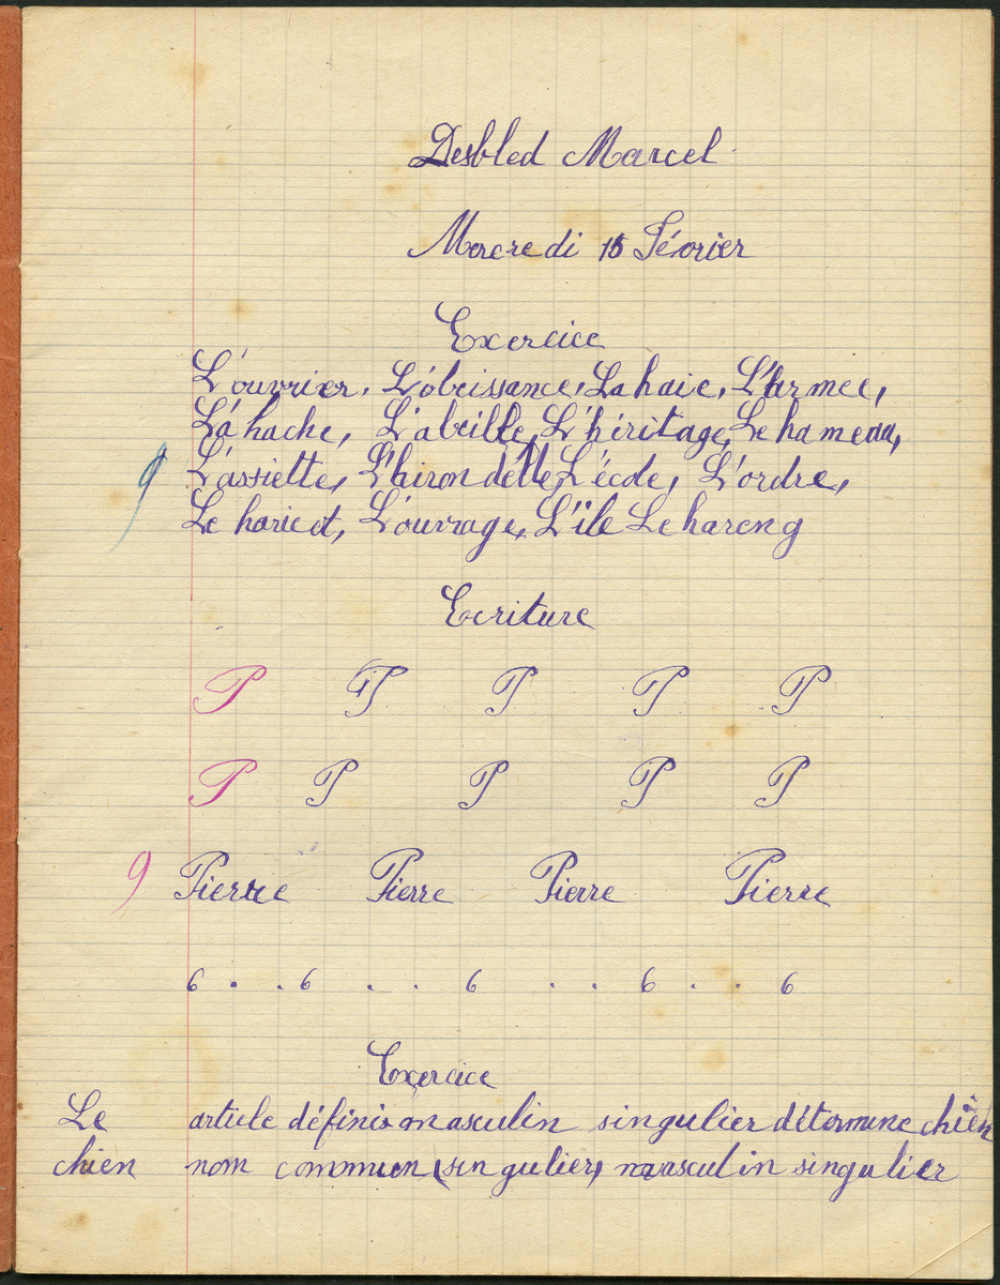 Desbled Marcel
Mercredi 15 Février
Exercice
L'ouvrier, L'obeissance, La haie, L'armee,
La hache, L'abeille, L'héritage, Le hameau,
9 L'assiette, L'hirondelle, L'école, L'ordre,
Le haricot, L'ouvrage, L'île Le hareng
Ecriture
P P P P P
P P P P P
9 Pierre Pierre Pierre Pierre
6 . . 6 . . 6 . . 6 . . 6
Exercice
Le article défini masculin singulier détermine chien
chien nom commun (singulier) masculin singulier